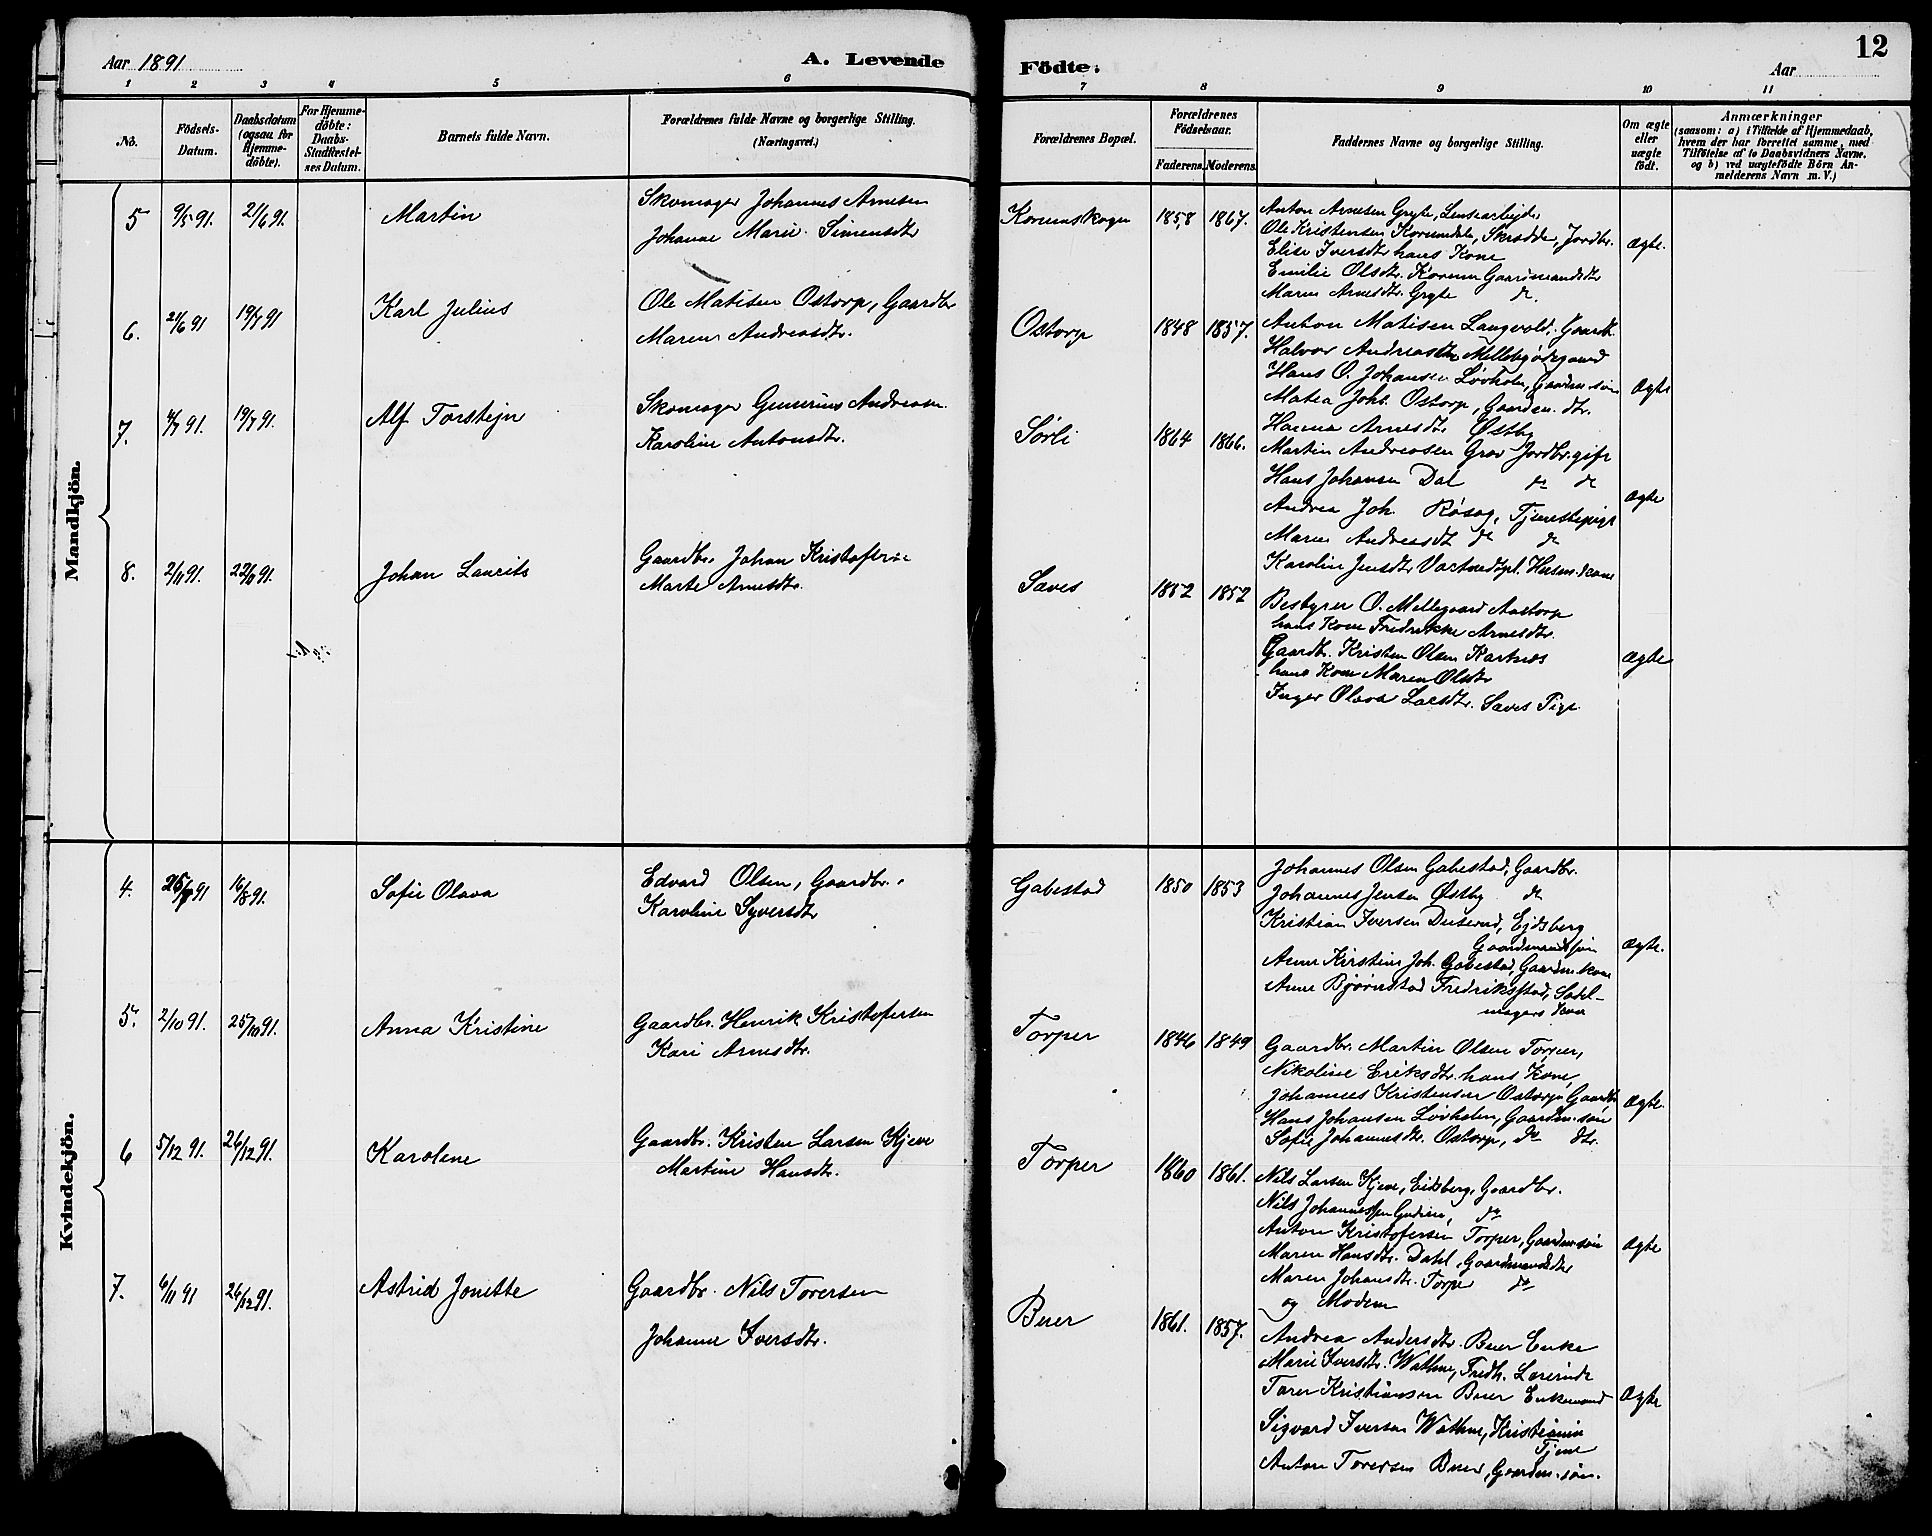 Aar 1891
A. Levende
Födte.
Aar
12
1 2 3 4 5 6 7 8 9 10 11
No.
Födsels-
Datum.
Daabsdatum
(ogsaa for
Hjemme-
döbte).
For Hjemme-
döbte:
Daabs-
Stadfæstel-
ses Datum.
Barnets fulde Navn.
Forældrenes fulde Navne og borgerlige Stilling.
(Næringsvei.)
Forældrenes Bopæl.
Forældrenes
Födselsaar.
Faderens. Moderens.
Faddernes Navne og borgerlige Stilling.
Om ægte
eller
uægte
födt.
Anmærkninger
(saasom: a) i Tilfælde af Hjemmedaab,
hvem der har forrettet samme, med
Tilföielse af to Daabsvidners Navne,
og b) ved uægtefödte Börn An-
melderens Navn m. V.)
Mandkjön.
5 9/5 91. 21/6 91. Martin
Skomager Johannes Arnesen
Johanne Marie Simensdtr
Korumskogen 1858 1867.
Anton Arnesen Gryte, Lensearbejder
Ole Kristensen Korumdalen, Skrædder, Jordbr.
Elise Iversdtr hans Kone
Emilie Olsdtr. Korum Gaardmandsdtr
Maren Arnesdtr. Gryte do.
Ægte.
6. 21/6 91 19/7 91 Karl Julius
Ole Matisen Ostorp, Gaardbr
Maren Andreasdtr.
Ostorp 1848 1857.
Anton Matisen Langvold, Gaardb.
Halvor Andreasen Mellebyødegaard
Hans O. Johansen Løvholm, Gaardm. søn
Matea Joh. Ostorp, Gaardm. dtr.
Hanna Arnesdtr Østby
Ægte
7. 4/7 91. 19/7 91. Alf Torstejn
Skomager Gunerius Andreasen.
Karoline Antonsdtr.
Sørli 1864 1866.
Martin Andreasen Grav Jordbr. gift
Hans Johansen Dal do do
Andrea Joh. Røsæg, Tjenestepige
Maren Andreasdt do do
Karolin Jensdtr Husm. kone
Ægte
8. 2/11 91. 22/11 91. Johan Laurits
Gaardbr. Johan Kristofersen
Marte Arnesdtr.
Saves 1852 1852
Bestyrer O. Mellegaard Aastorp
hans Kone Fredrikke Arnesdtr.
Gaardbr. Kristen Olsen Kartnes
hans Kone Maren Olsdtr
Inger Olava Larsdtr. Saves Pige
Ægte
Kvindekjön.
4. 25/7 91 16/8 91. Sofie Olava
Edvard Olsen, Gaardbr.
Karoline Syversdtr
Gabestad 1850 1853
Johannes Olsen Gabestad, Gaardbr.
Johannes Jensen Østby do
Kristian Iversen Duserud, Ejdsberg
Gaardmandssøn
Anne Kirstine Joh. Gabestad, Gaardm. kone
Anne Bjørnstad Fredriksstad, Sadel-
magers Kone
Ægte.
5. 2/10 91. 25/10 91. Anna Kristine
Gaardbr. Henrik Kristofersen
Kari Arnesdtr.
Torper 1846 1849
Gaardbr. Martin Olsen Torper,
Nikoline Eriksdtr. hans Kone,
Johannes Kristensen Ostorp Gaardbr
Hans Johansen Løvholm, Gaardm. søn
Sofie Johannesdtr. Ostorp, do dtr.
Ægte.
6 5/12 91. 26/12 91. Karolene
Gaardbr. Kristen Larsen Kjeve
Martine Hansdtr.
Torper 1860 1861.
Nils Larsen Kjeve, Eidsberg, Gaardbr.
Nils Johannessen Gudim, do
Anton Kristofersen Torper, Gaardm. søn
Maren Hansdtr. Dahl, Gaardmandsdtr
Maren Johansdtr. Torper do
og Moderen
Ægte
7. 6/11 91 26/12 91. Astrid Jonette
Gaardbr. Nils Torersen
Johanne Iversdtr.
Buer 1861. 1857.
Andrea Andersdtr. Buer Enke
Marie Iversdtr. Wathne, Fredh. Lærerinde
Torer Kristiansen Buer Enkemand
Sigvard Iversen Wathne, Kristiania
Tjene
Anton Torersen Buer, Gaardm. søn.
Ægte